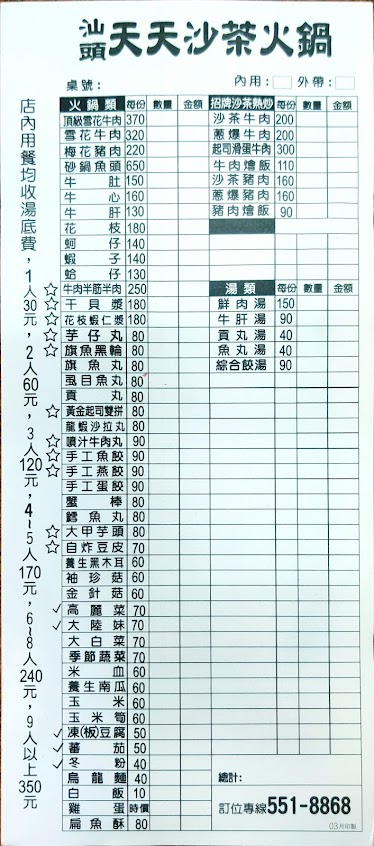 汕頭天天沙茶火鍋
桌號：
內用：
外帶：
店內用餐均收湯底費，1人30元，2人60元，3人120元，4~5人170元，6~8人240元，9人以上350元
火鍋類 每份 數量 金額
頂級雪花牛肉 370
雪花牛肉 320
梅花豬肉 220
砂鍋魚頭 650
牛肚 150
牛心 160
牛肝 130
花枝 180
蚵仔 140
蝦子 140
蛤仔 130
☆ 牛肉半筋半肉 250
☆ 干貝漿 180
☆ 花枝蝦仁漿 180
☆ 芋仔丸 80
☆ 旗魚黑輪 80
旗魚丸 80
虱目魚丸 80
貢丸 80
☆ 黃金起司雙拼 80
龍蝦沙拉丸 80
☆ 噴汁牛肉丸 90
☆ 手工魚餃 90
☆ 手工燕餃 90
手工蛋餃 90
蟹棒 80
鱈魚丸 80
☆ 大甲芋頭 80
☆ 自炸豆皮 70
養生黑木耳 60
袖珍菇 60
金針菇 60
✓ 高麗菜 70
✓ 大陸妹 70
大白菜 70
季節蔬菜 70
米血 60
養生南瓜 60
玉米 60
玉米筍 60
✓ 凍(板)豆腐 50
✓ 蕃茄 50
✓ 冬粉 40
烏龍麵 40
白飯 10
雞蛋 時價
扁魚酥 80
招牌沙茶熱炒 每份 數量 金額
沙茶牛肉 200
蔥爆牛肉 200
起司滑蛋牛肉 300
牛肉燴飯 110
沙茶豬肉 160
蔥爆豬肉 160
豬肉燴飯 90
湯類 每份 數量 金額
鮮肉湯 150
牛肝湯 90
貢丸湯 40
魚丸湯 40
綜合餃湯 90
總計：
訂位專線551-8868
03月印製